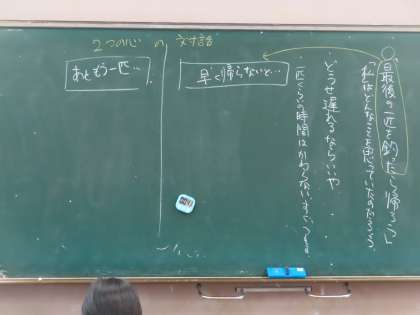 2つの心の対話
最後の一匹を釣ったら帰ろう」
「私はどんなことを思っていたのだろう。
・どうせ遅れるならいいや
・一匹くらいの時間はかわらない
早く帰らないと…
あともう一匹…